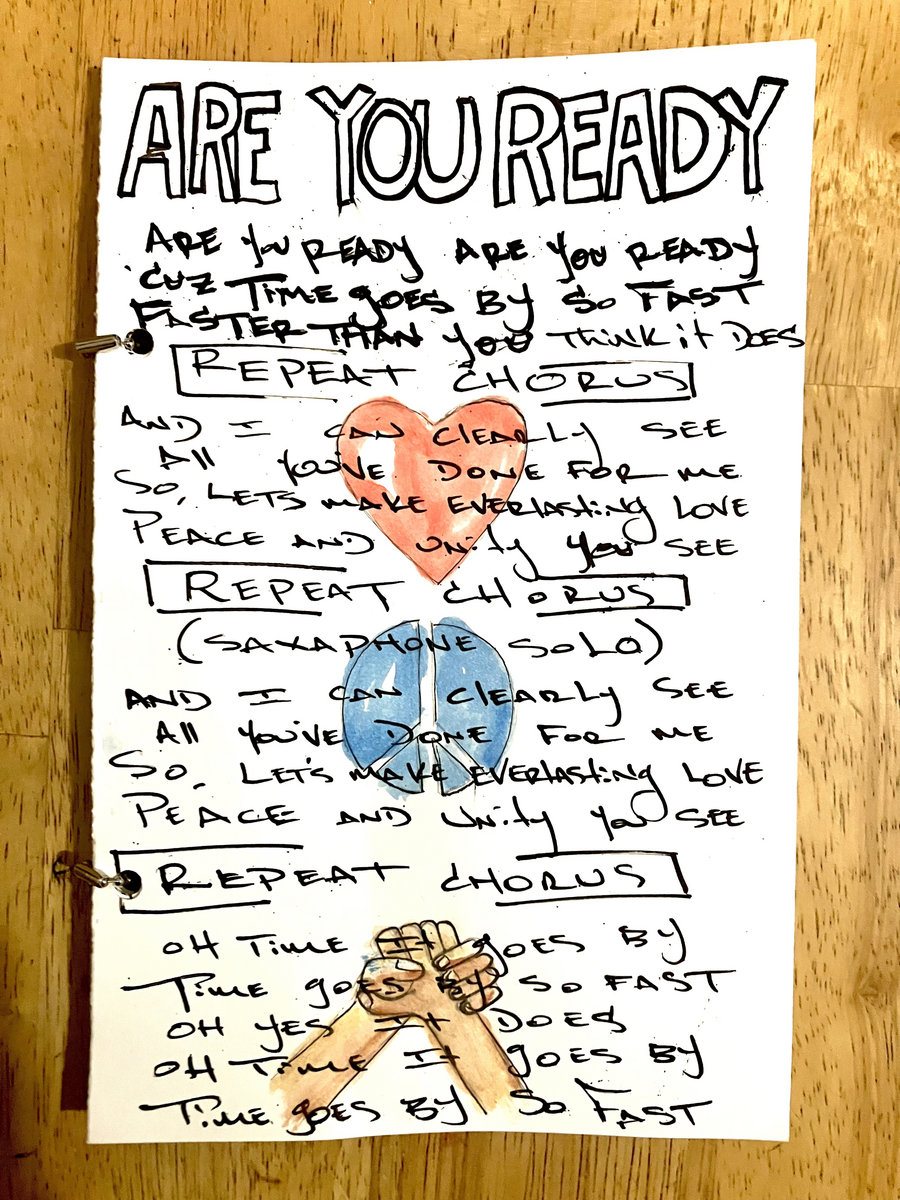 ARE YOU READY
ARE YOU READY ARE YOU READY
'CUZ TIME GOES BY SO FAST
FASTER THAN YOU THINK iT DOES
REPEAT CHORUS
AND I CAN CLEARLY SEE
All YOU'VE DONE FOR ME
SO, LETS MAKE EVERLASTING LOVE
PEACE AND UNITY YOU SEE
REPEAT CHORUS
(SAXAPHONE SOLO)
AND I CAN CLEARLY SEE
All YOU'VE DONE FOR ME
SO, LET'S MAKE EVERLASTING LOVE
PEACE AND UNITY YOU SEE
REPEAT CHORUS
OH TIME IT GOES BY
TIME GOES BY SO FAST
OH YES IT DOES
OH TIME IT GOES BY
TIME GOES BY SO FAST